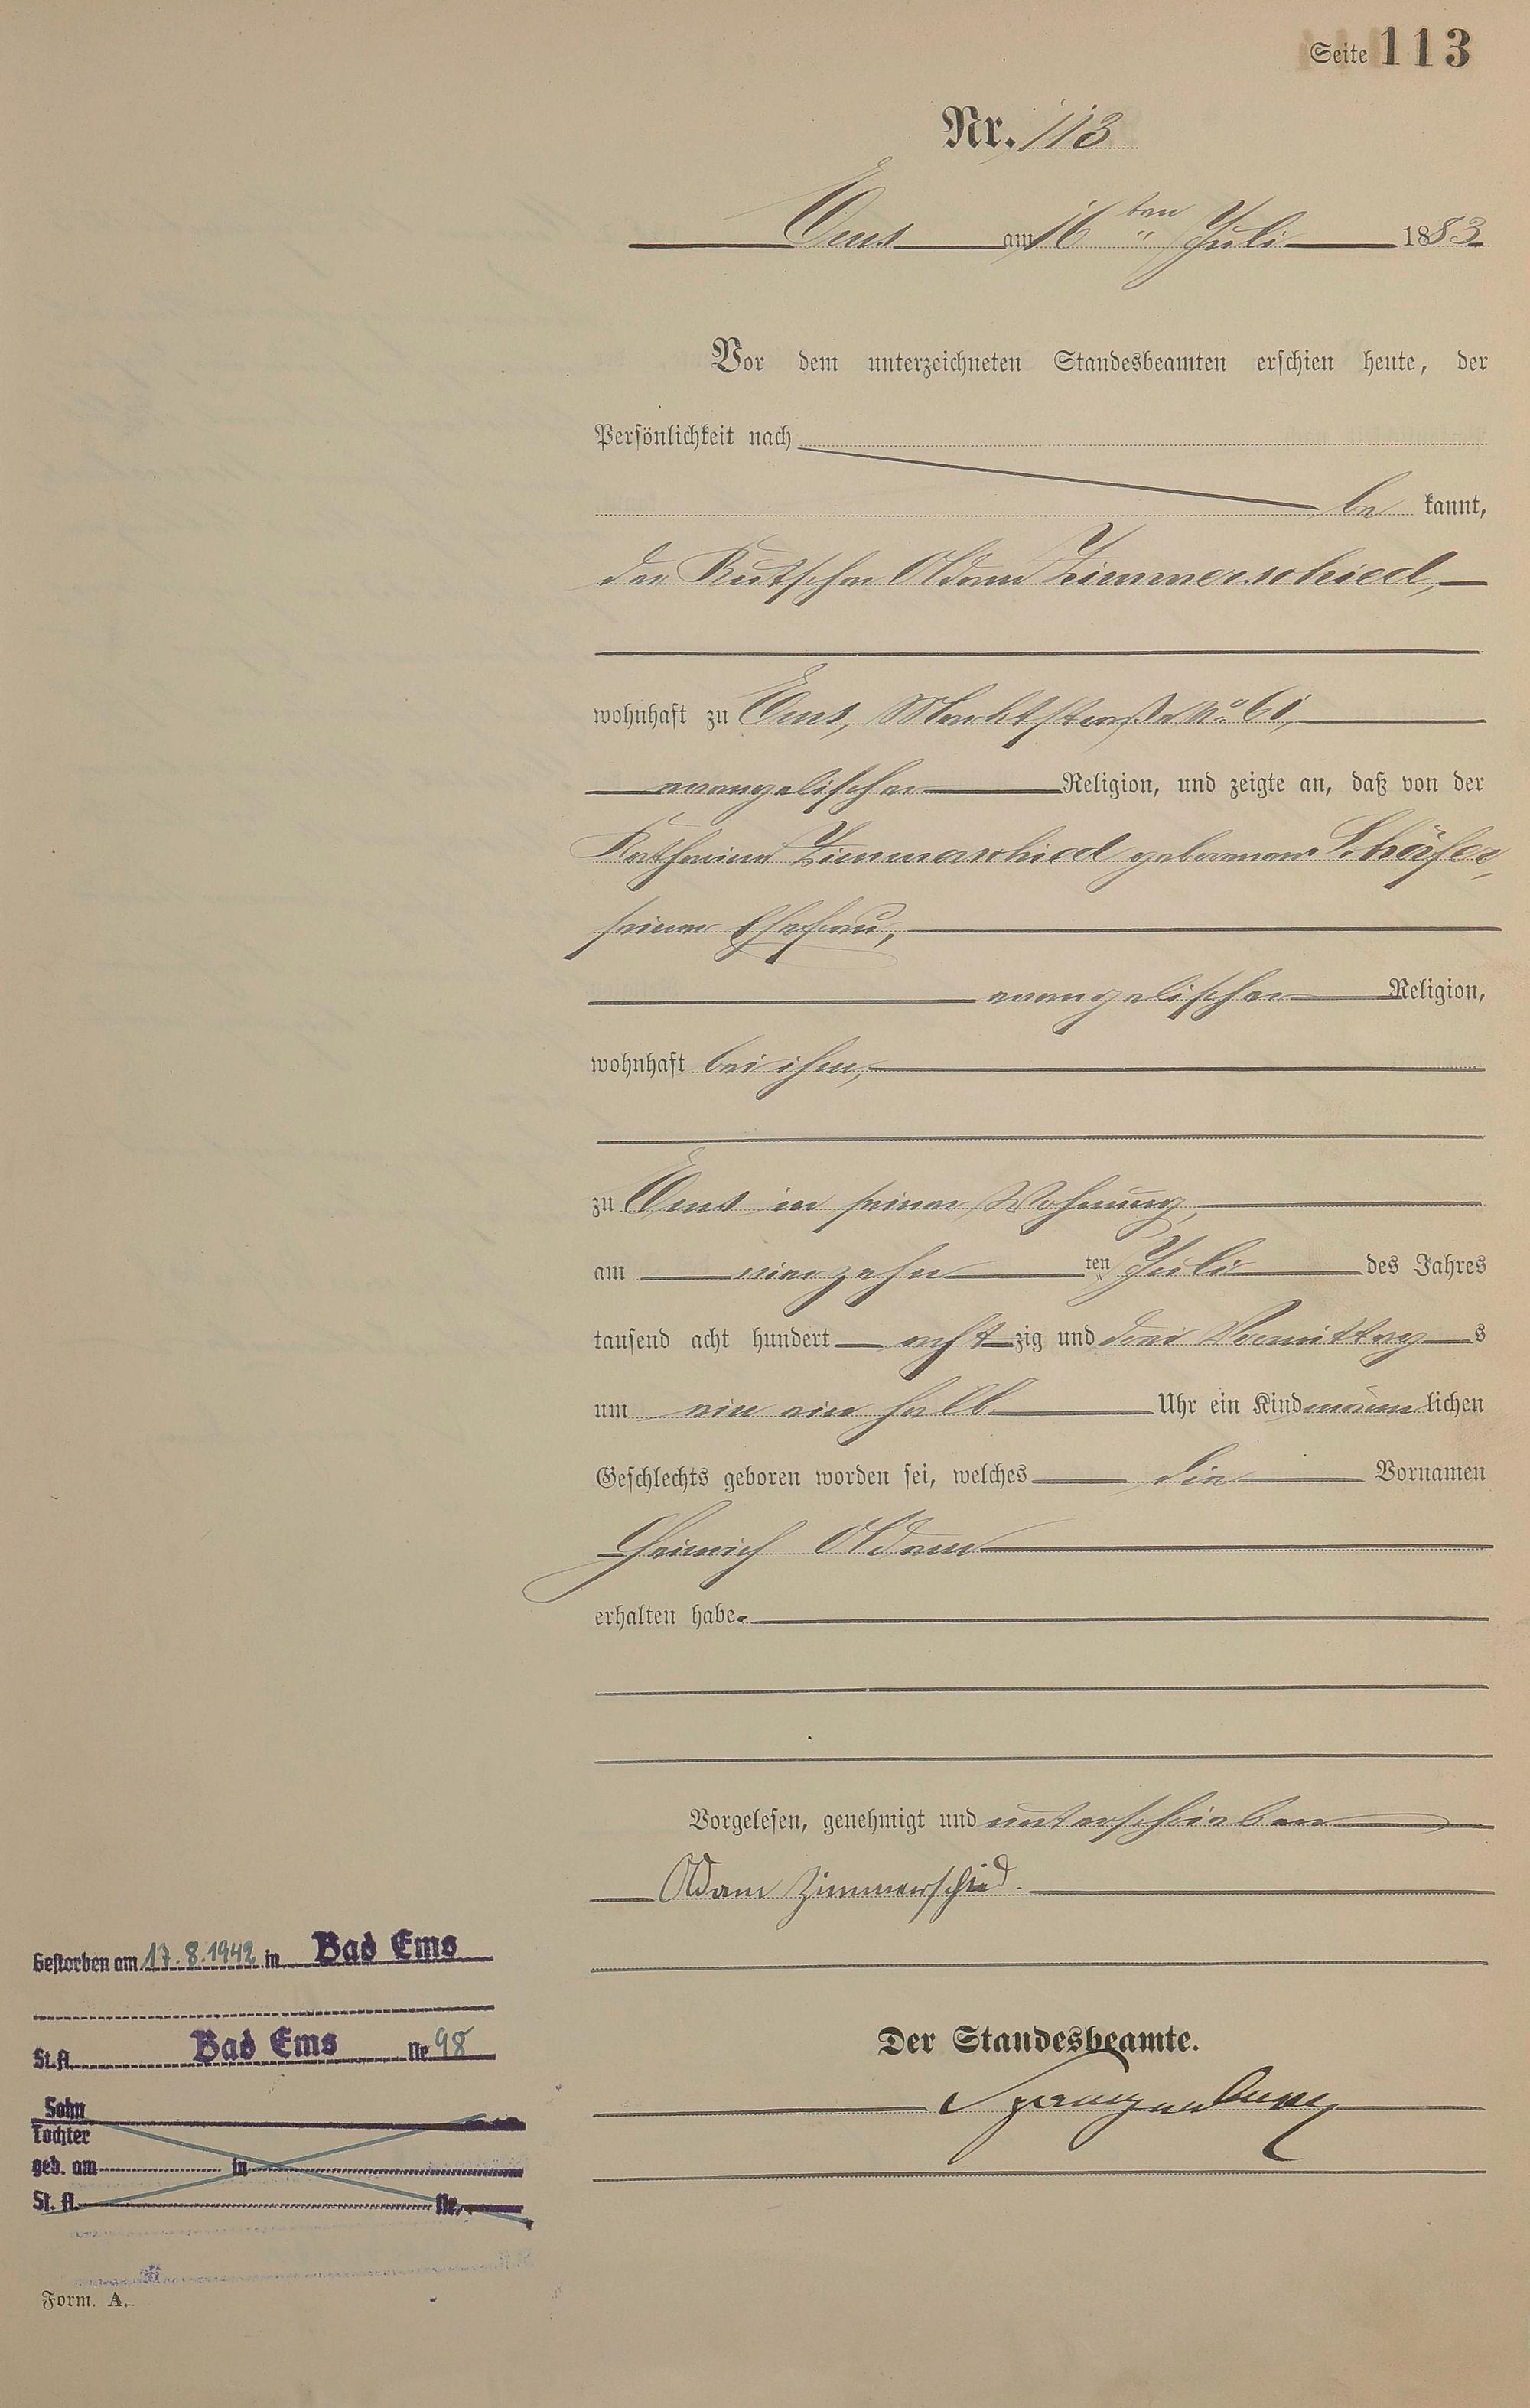 Seite 113
Nr. 113
Ems am 16ten Juli 1883
Vor dem unterzeichneten Standesbeamten erschien heute, der
Persönlichkeit nach
be kannt,
der Kutscher Adam Zimmerschied,
wohnhaft zu Ems, Marktstraße No 61,
evangelischer Religion, und zeigte an, daß von der
Katharina Zimmerschied geborenen Schäfer,
seiner Ehefrau,
evangelischer Religion,
wohnhaft bei ihm,
zu Ems in seiner Wohnung,
am vierzehn ten Juli des Jahres
tausend acht hundert acht zig und drei Vormittag s
um ein ein halb Uhr ein Kind männ lichen
Geschlechts geboren worden sei, welches die Vornamen
Heinrich Adam
erhalten habe.
Vorgelesen, genehmigt und unterschrieben
Adam Zimmerschied.
Der Standesbeamte.
Spangenberg
Gestorben am 17.8.1942 in Bad Ems
St.A. Bad Ems Nr. 98
Sohn
Tochter
geb. am in
St. A. Nr.
Form. A.